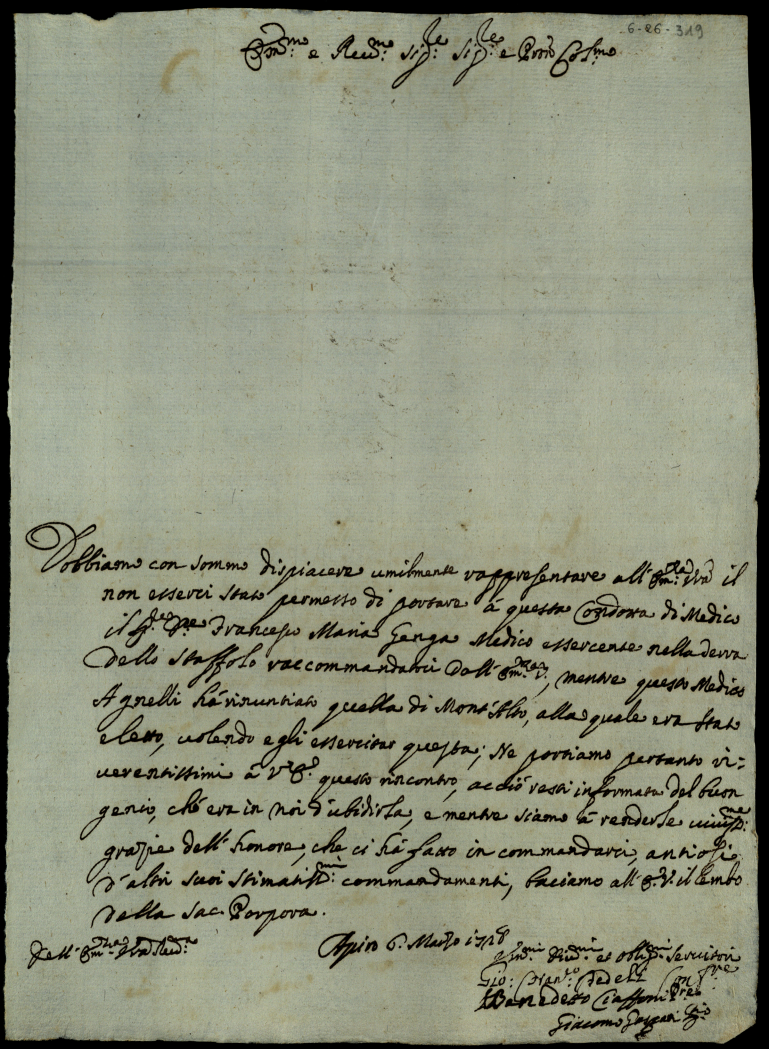 6-26-319
Em.mo e Rev.mo Sig.re Sig.re e P̃rõn Col.mo
Dobbiamo con sommo dispiacere umilmente rappresentare all' Em.za V̄rā il
non esserci stato permesso di portare à questa Condotta di Medico
il Francesco Maria Genga Medico essercente nella Terra
dello Staffolo raccommandatoci dall' Em.za V., mentre questo Medico
Agnelli hà rinuntiato quella di Mont'Alto, alla quale era stato
eletto, volendo egli essercitar questa; Ne portiamo pertanto ri=
verentissimi à V. E. questo rincontro, acciò resti informata del buon
genio, ch'era in noi d'ubidirla, e mentre siamo à renderle
grazie dell' honore, che ci hà fatto in commandarci, antiosi
d'altri suoi stimatiss.mi commandamenti, baciamo all' E. V. il lembo
della Sac. Porpora.
Dell' Em.za V̄rā Rev.ma
Apiro 6 Marzo 1718
Hum.mi Div.mi et Oblig.mi Servitori
Gio: Fedeli Conf.re
Benedetto Ciaffoni Pre
Giacomo Gaspari